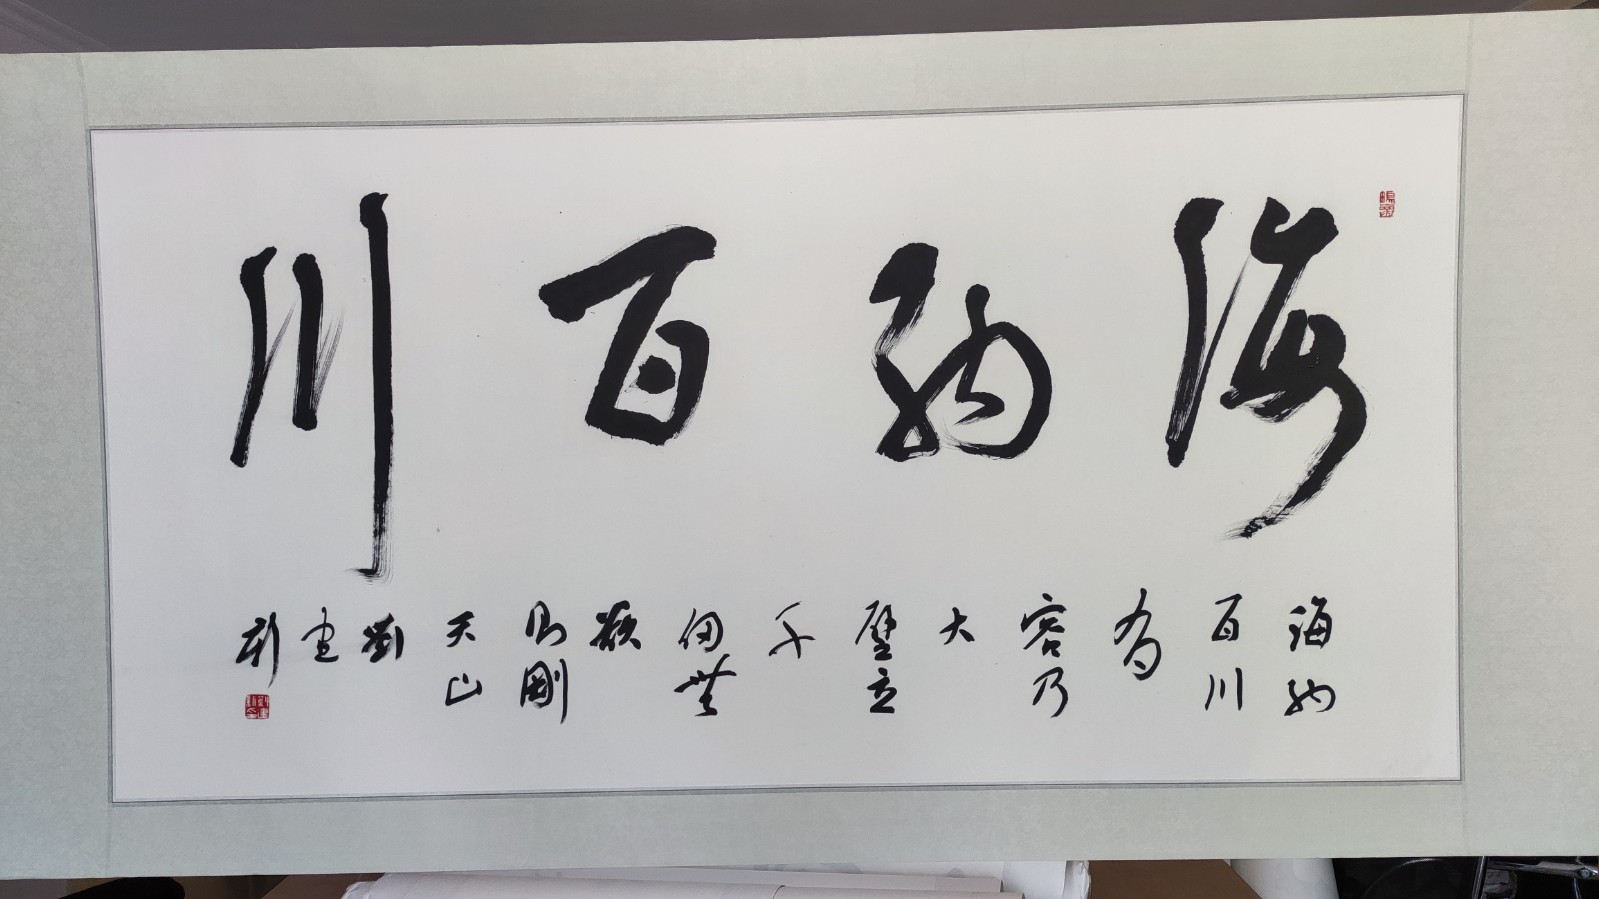 海纳百川
海纳
百川
有
容乃
大
壁立
千
仞無
欲
则剛
天
山
劉
建
新